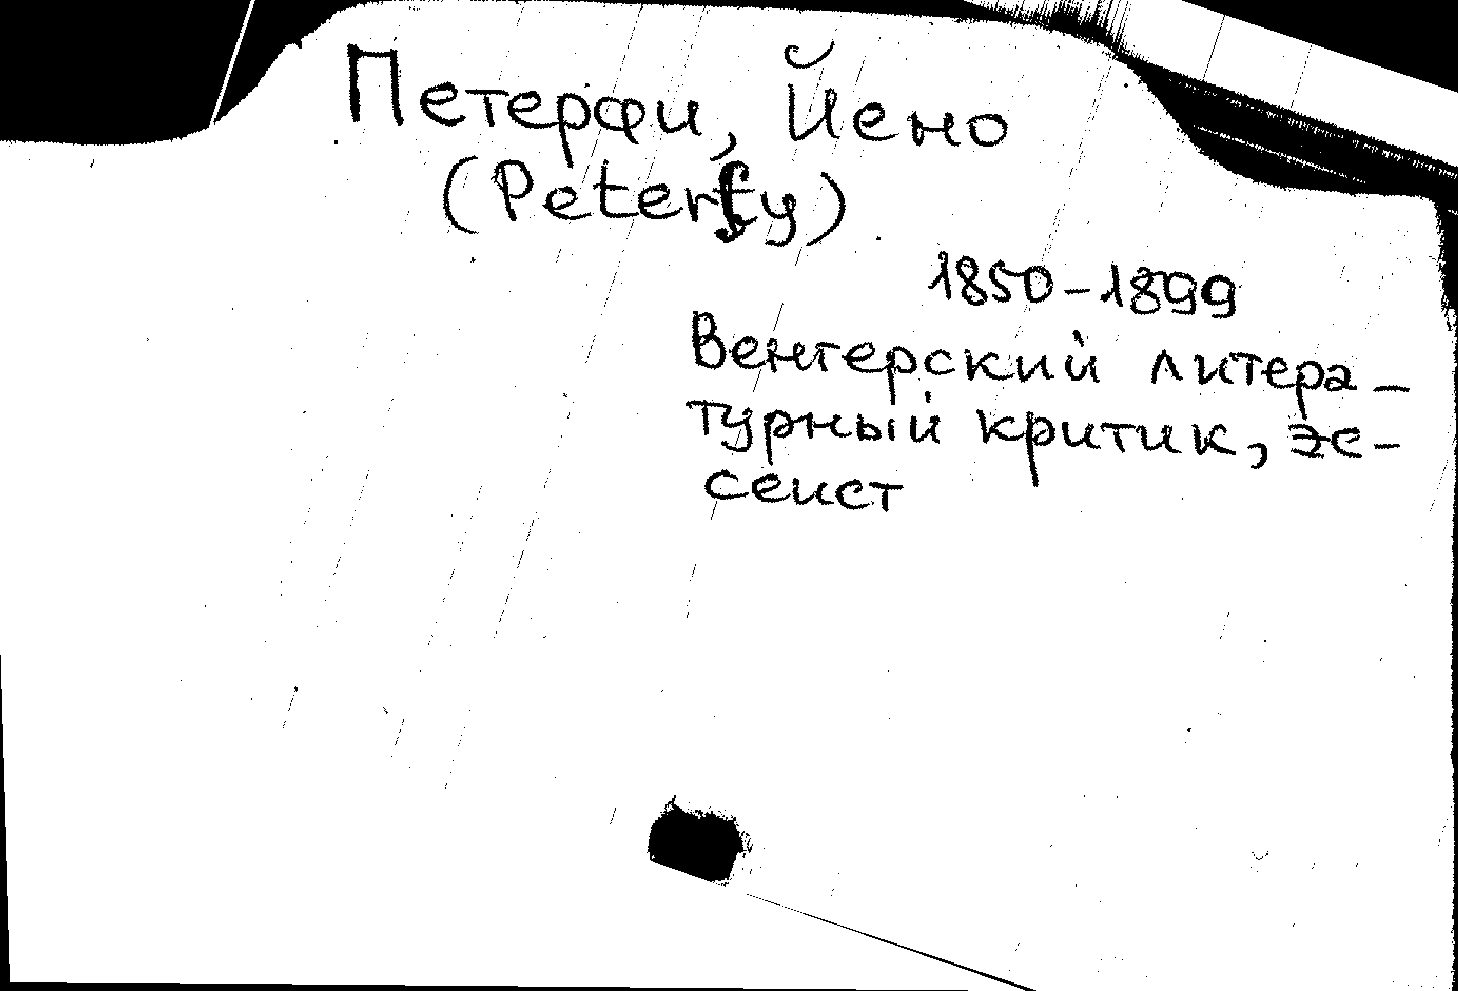 Петерфи, Йено
(Peterfy)
1850-1899
Венгерский литера-
турный критик, эс-
сеист